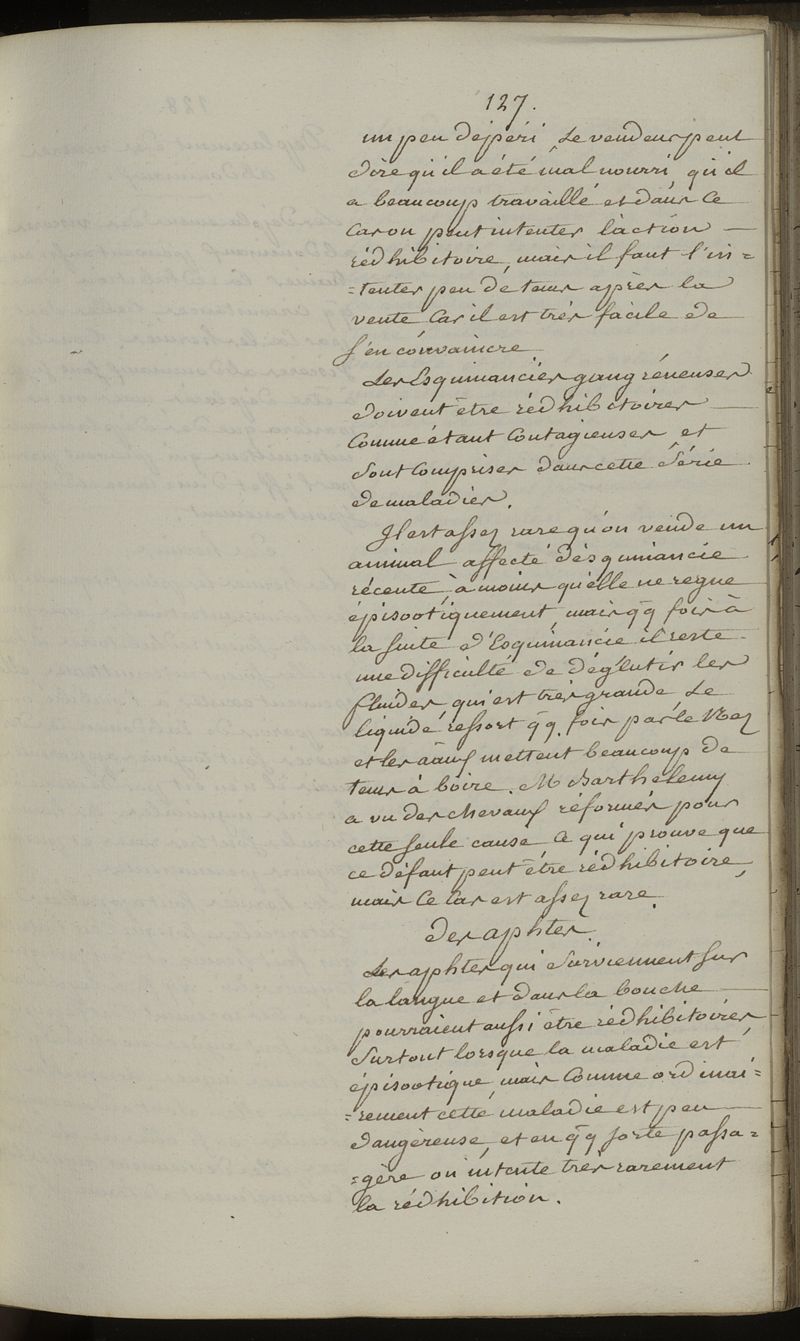 127.
un peu dépéri, le vendeur peut
dire qu'il a été mal nourri, qu'il
a beaucoup travaillé et dans ce
cas on peut intenter l'action —
rédhibitoire, mais il faut l'in=
=tenter peu de tems après la
vente car il est très facile de
s'en convaincre
Les Esquinancies gangréneuses
doivent être rédhibitoires —
comme étant contagieuses, et
sont comprises dans cette série
de maladies.
Il est assez rare qu'on vende un
animal affecté d'esquinancie
récente, à moins qu'elle ne regne
épisootiquement, mais qq fois à
la suite d'Esquinancie il reste
une difficulté de déglutir les
fluides, qui est très grande, le
liquide ressort qq. fois par le Nez
et les aaux mettent beaucoup de
tems à boire. M Barthelemy
a vu des chevaux réformés pour
cette seule cause, ce qui prouve que
ce défaut peut être rédhibitoire,
mais ce cas est assez rare.
des aphtes.
Les aphtes qui surviennent sur
la langue et dans la bouche —
pourraient aussi être rédhibitoires
surtout lorsque la maladie est
épisootique, mais comme ordinai=
=rement cette maladie est peu —
dangèreuse, et en qq sorte passa=
=gère on intente très rarement
la rédhibition.